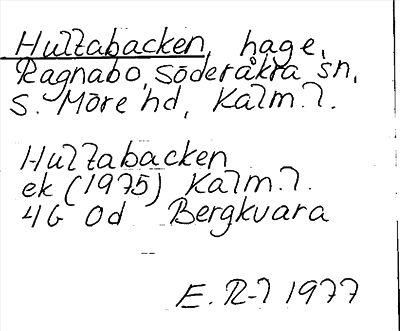 Hultabacken, hage,
Ragnabo, Söderåkra sn,
S. Möre hd, Kalm. l.
Hultabacken
ek (1975) Kalm. l.
4G 0d Bergkvara
E. R-l 1977